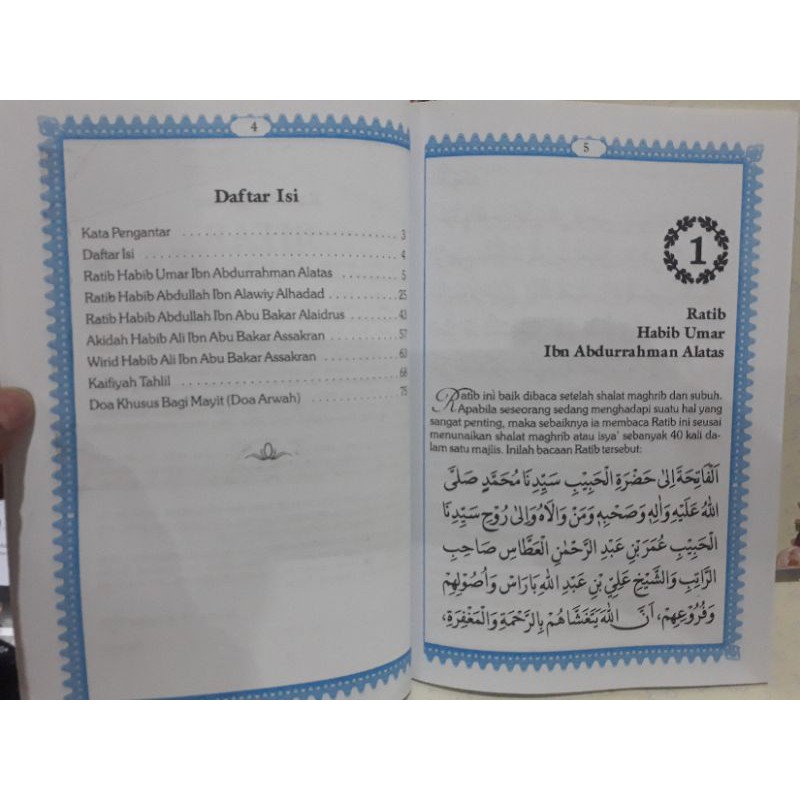 4
Daftar Isi
Kata Pengantar . . . . . . . . . . . . . . . . . . . . . . . . 3
Daftar Isi . . . . . . . . . . . . . . . . . . . . . . . . . . . . 4
Ratib Habib Umar Ibn Abdurrahman Alatas . . . . . . . 5
Ratib Habib Abdullah Ibn Alawiy Alhadad . . . . . . . . 25
Ratib Habib Abdullah Ibn Abu Bakar Alaidrus . . . . . 43
Akidah Habib Ali Ibn Abu Bakar Assakran . . . . . . . . 57
Wirid Habib Ali Ibn Abu Bakar Assakran . . . . . . . . . 63
Kaifiyah Tahlil . . . . . . . . . . . . . . . . . . . . . . . . 68
Doa Khusus Bagi Mayit (Doa Arwah) . . . . . . . . . . . 75
5
1
Ratib
Habib Umar
Ibn Abdurrahman Alatas
Ratib ini baik dibaca setelah shalat maghrib dan subuh.
Apabila seseorang sedang menghadapi suatu hal yang
sangat penting, maka sebaiknya ia membaca Ratib ini seusai
menunaikan shalat maghrib atau isya' sebanyak 40 kali da-
lam satu majlis. Inilah bacaan Ratib tersebut:
اَلْفَاتِحَةَ اِلٰى حَضْرَةِ الْحَبِيْبِ سَيِّدِنَا مُحَمَّدٍ صَلَّى
اللّٰهُ عَلَيْهِ وَاٰلِهِ وَصَحْبِهٖ وَمَنْ وَالَاهُ وَاِلٰى رُوْحِ سَيِّدِنَا
الْحَبِيْبِ عُمَرَ بْنِ عَبْدِ الرَّحْمٰنِ الْعَطَّاسِ صَاحِبِ
الرَّاتِبِ وَالشَّيْخِ عَلِيِّ بْنِ عَبْدِ اللّٰهِ بَارَاسْ وَاُصُوْلِهِمْ
وَفُرُوْعِهِمْ، اَنَّ اللّٰهَ يَتَغَشَّاهُمْ بِالرَّحْمَةِ وَالْمَغْفِرَةِ،